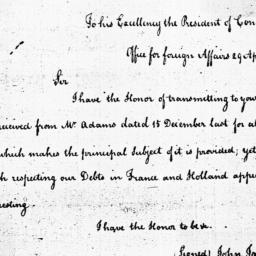 To his Excellency the President of Con
Office for foreign Affairs 29 Ap
Sir
I have the Honor of transmitting to you
received from Mr Adams dated 15 December last for al
which makes the principal Subject of it is provided; yet
h respecting our Debts in France and Holland appe
resting.
I have the Honor to be &c.
(signed) John Ja